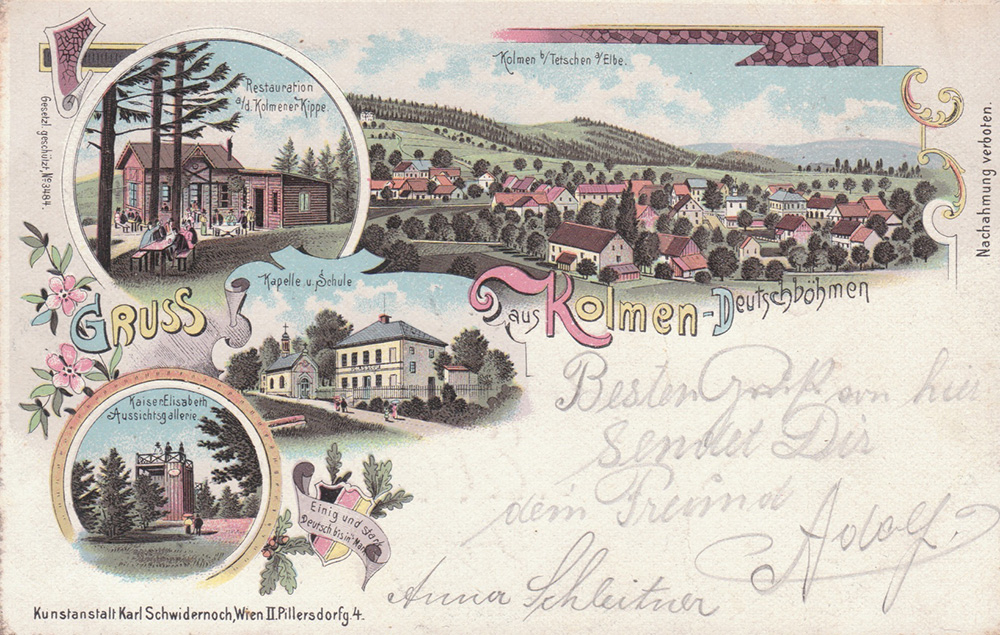 Kolmen b/Tetschen a/Elbe.
Restauration
a/d. Kolmener Kippe.
Gesetzl. geschützt, No. 3484.
Nachahmung verboten.
Kapelle u. Schule
GRUSS
aus Kolmen-Deutschböhmen
Kaiser Elisabeth
Aussichtsgallerie.
Einig und stark
Deutsch bis in's Mark
Besten Gruß von hier
sendet Dir
dein Freund
Adolf.
Anna Schleitner
Kunstanstalt Karl Schwidernoch, Wien II. Pillersdorfg. 4.